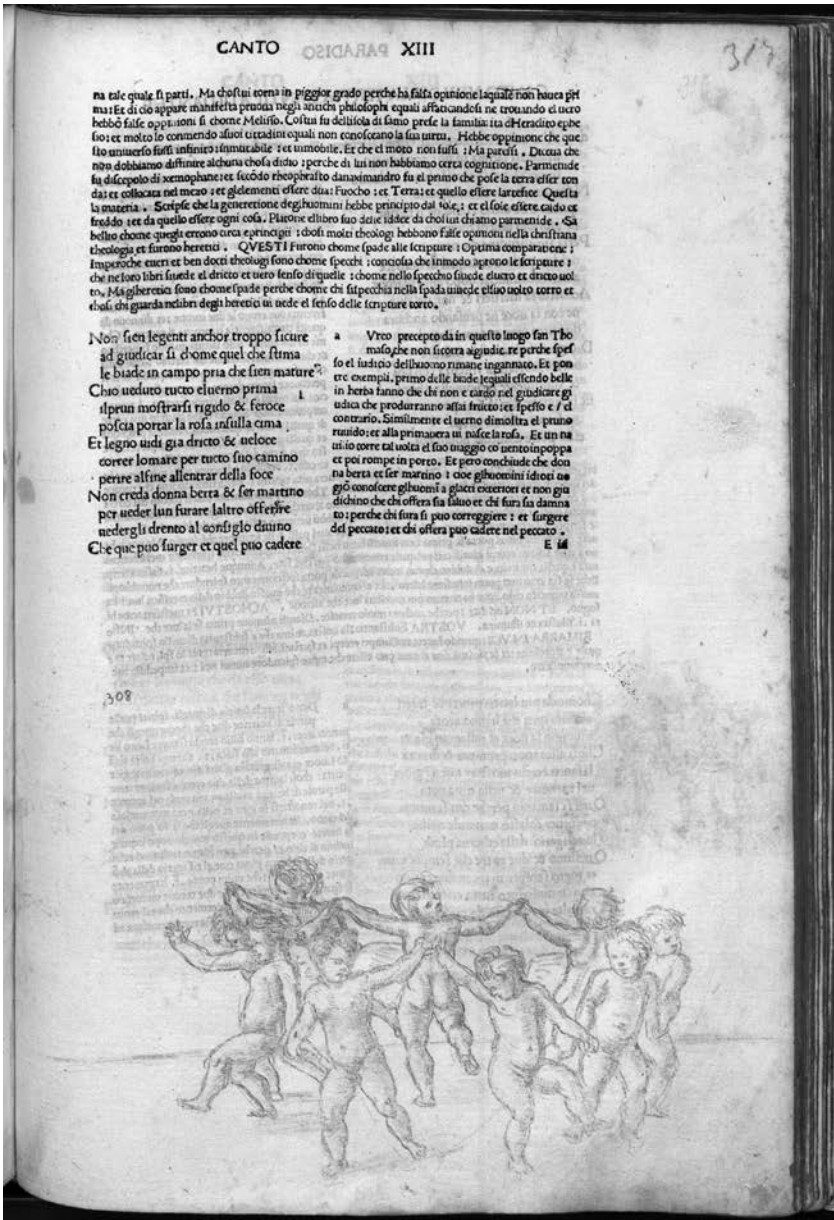 CANTO XIII
317
na tale quale si parti. Ma chostui torna in piggior grado perche ha falsa opinione laquale non hauea pri
ma: Et di cio appare manifesta pruoua negli antichi philosophi equali affaticandosi ne trouando eluero
hebbõ false oppinioni si chome Melisso. Costui fu dellisola di samo prese la familiarita dHeraclito ephe
sio: et molto lo commendo asuoi cittadini equali non conosceano la sua uirtu. Hebbe oppinione che que
sto uniuerso fussi infinito: inmutabile: et inmobile. Et che el moto non fussi: Ma paressi. Diceua che
non dobbiamo diffinire alchuna chosa didio: perche di lui non habbiamo certa cognitione. Parmenide
fu discepolo di xemophane: et secõdo theophrasto danaximandro fu el primo che pose la terra esser ton
da: et collocata nel mezo: et glelementi essere dua: Fuocho: et Terra: et quello essere lartefice Questa
la materia. Scripse che la generetione deglhuomini hebbe principio dal sole,: et el sole essere caldo et
freddo: et da quello essere ogni cosa. Platone ellibro suo delle iddee da chostui chiamo parmenide. Sa
bellio chome quegli errono circa eprincipii: chosi molti theologi hebbono false opinioni nella christiana
theologia et furono heretici. QVESTI Furono chome spade alle scripture: Optima comparatione:
Imperoche eueri et ben docti theologi sono chome specchi: conciosa che inmodo aprono le scripture:
che ne loro libri siuede el dricto et uero senso di quelle: chome nello specchio siuede eluero et dricto uol
to. Ma giheretici sono chome spade perche chome chi sispecchia nella spada uiuede elsuo uolto torto et
chosi chi guarda nelibri degli heretici ui uede el senso delle scripture torto.
Non sien legenti anchor troppo sicure
ad giudicar si chome quel che stima
le biade in campo pria che sien mature
Chio ueduto tucto eluerno prima
ilprun mostrarsi rigido & feroce
poscia portar la rosa insulla cima
Et legno uidi gia dricto & ueloce
correr lomare per tucto suo camino
perire alfine allentrar della foce
Non creda donna berta & ser martino
per ueder lun furare laltro offerire
uedergli drento al consiglo diuino
Che que puo surger et quel puo cadere
a Vreo precepto da in questo luogo san Tho
maso, che non sicorra agiudicare perche spes
so el iudicio dellhuomo rimane ingannato. Et pon
tre exempli. primo delle biade lequali essendo belle
in herba fanno che chi non e tardo nel giudicare gi
udica che produrranno assai fructo: et spesso e / el
contrario. Similmente el uerno dimostra el pruno
ruuido: et alla primauera ui nasce la rosa. Et un na
uilio corre tal uolta el suo uiaggio cõ uento inpoppa
et poi rompe in porto. Et pero conchiude che don
na berta et ser martino: cioe glhuomini idioti nõ
giõ conoscere glhuomĩ a glacti exteriori et non giu
dichino che chi offera sia saluo et chi fura sia damna
to: perche chi fura si puo correggiere: et surgere
del peccato: et chi offera puo cadere nel peccato.
308